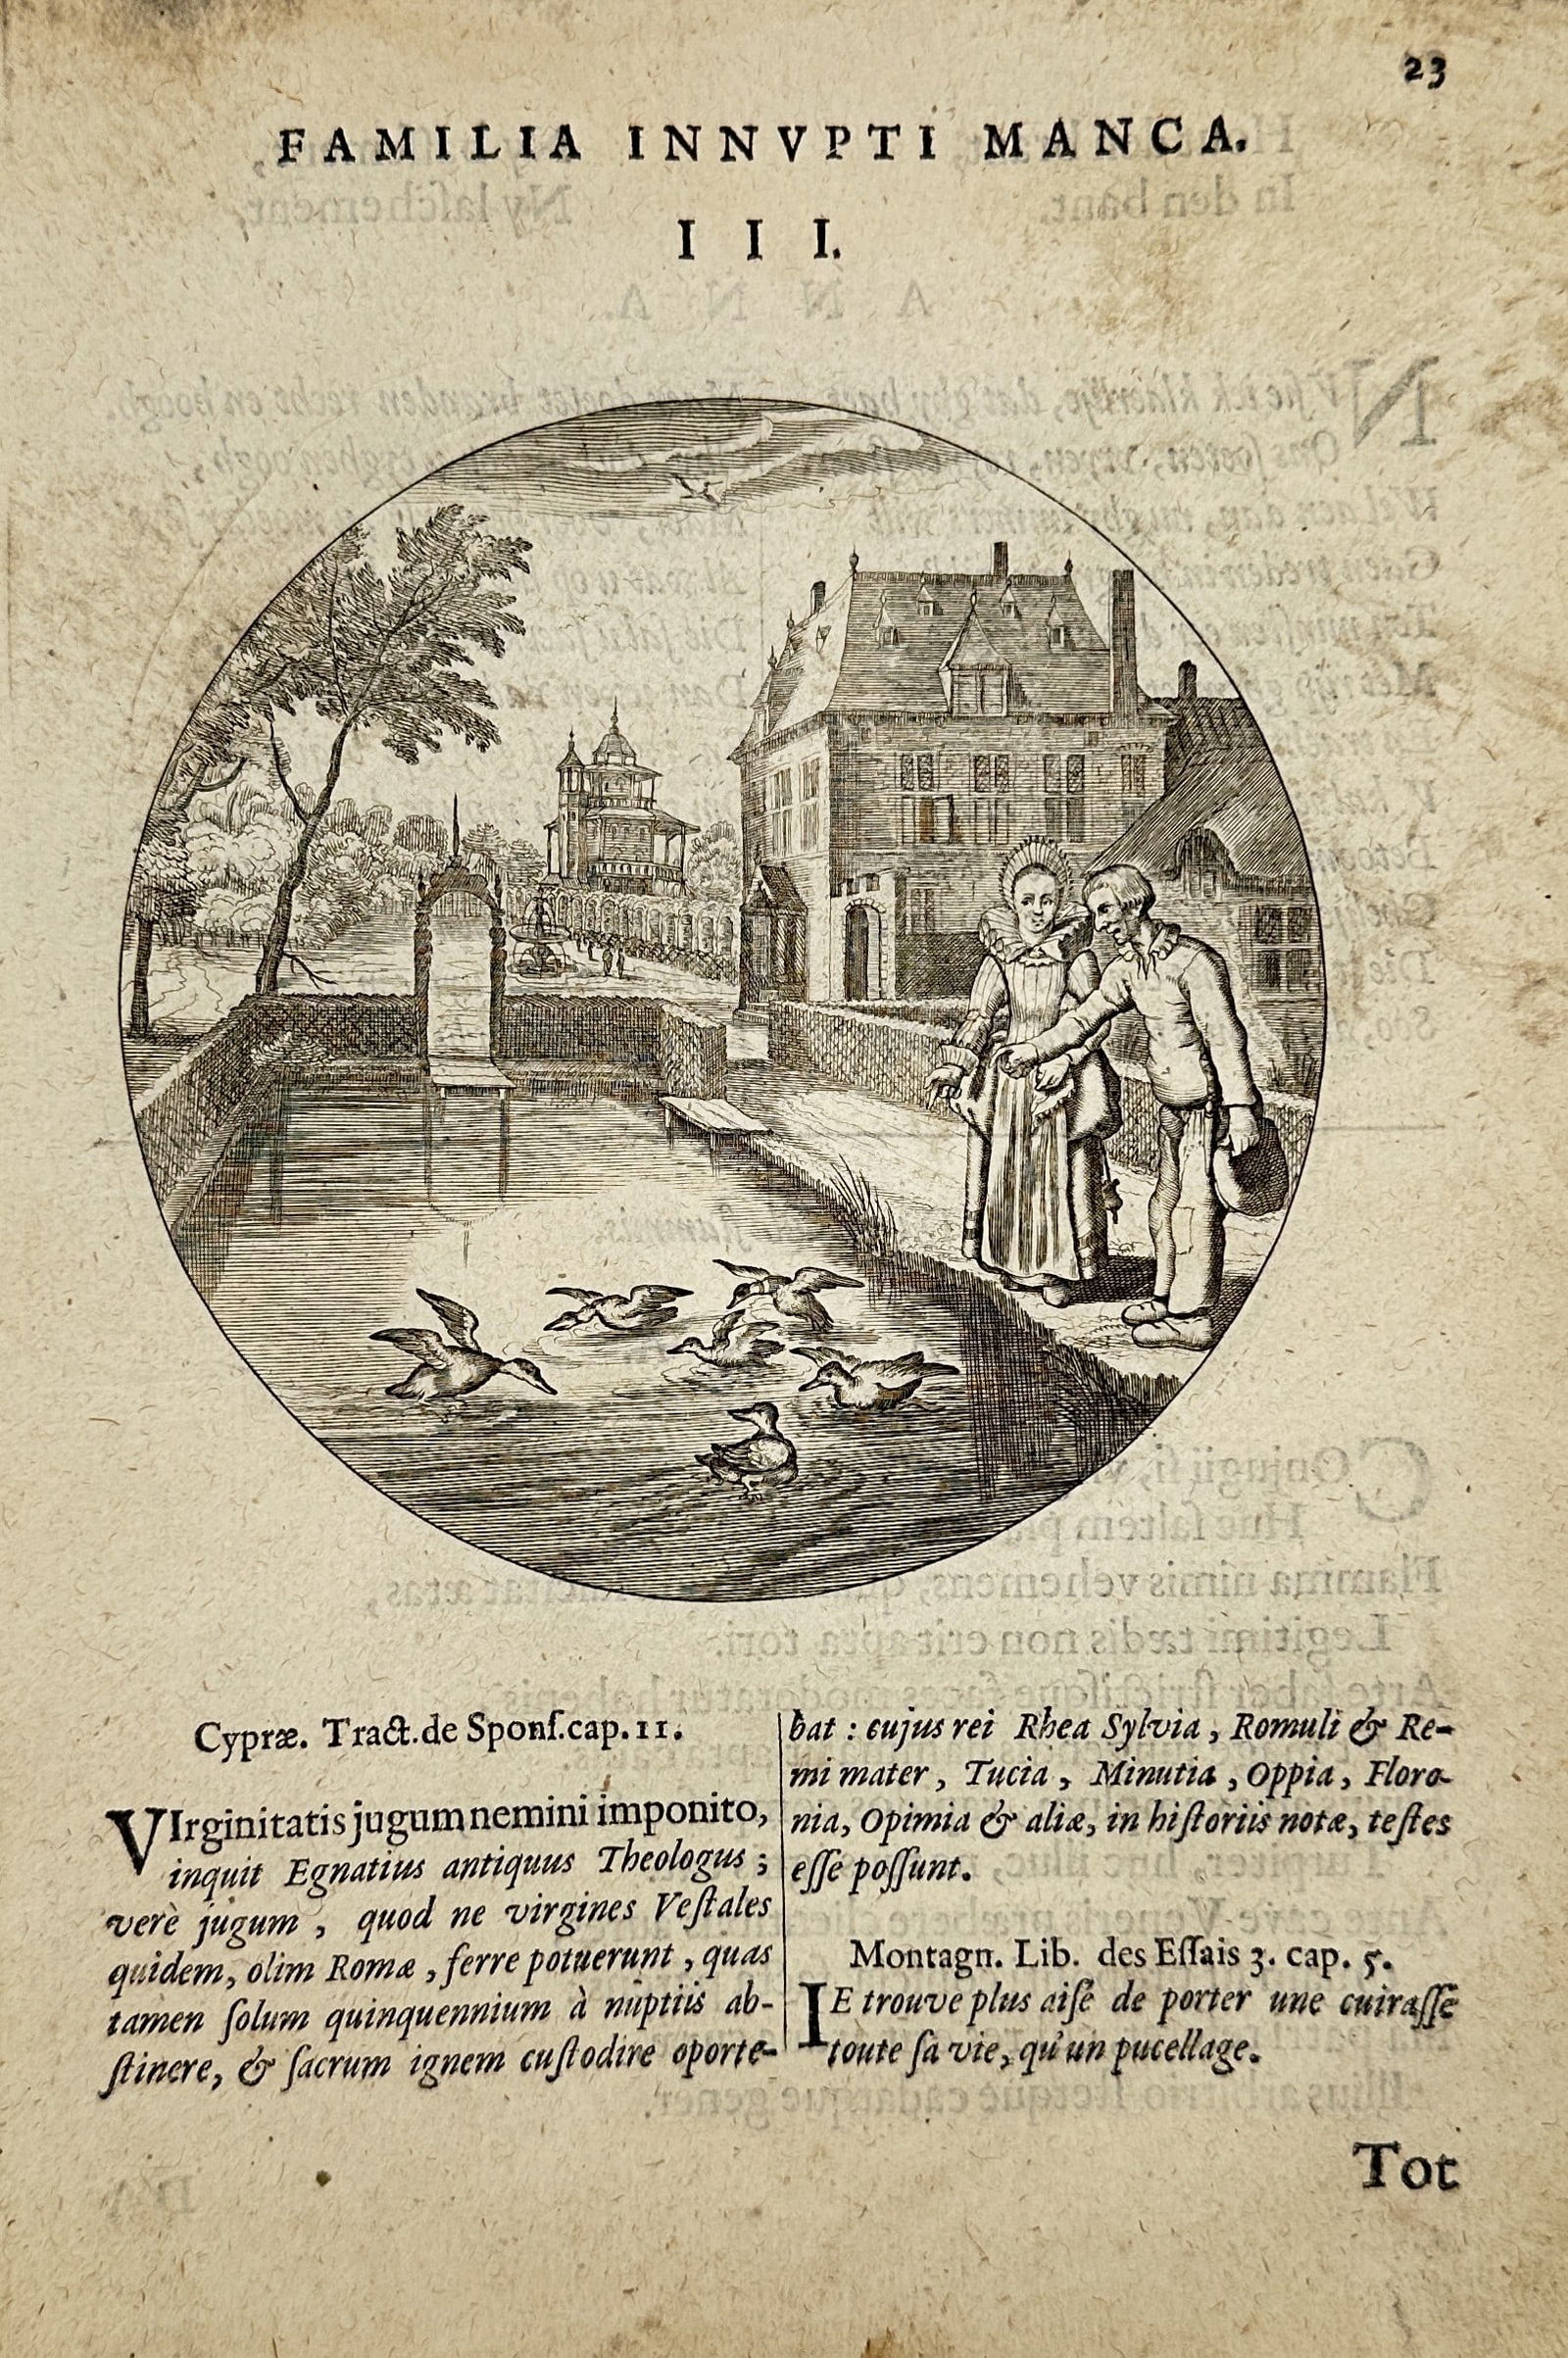 23
FAMILIA INNVPTI MANCA.
III.
Cypræ. Tract. de Sponſ. cap. 11.
VIrginitatis jugum nemini imponito,
inquit Egnatius antiquus Theologus;
verè jugum, quod ne virgines Veſtales
quidem, olim Romæ, ferre potuerunt, quas
tamen ſolum quinquennium à nuptiis ab-
ſtinere, & ſacrum ignem cuſtodire oporte-
bat: cujus rei Rhea Sylvia, Romuli & Re-
mi mater, Tucia, Minutia, Oppia, Floro-
nia, Opimia & aliæ, in hiſtoriis notæ, teſtes
eſſe poſſunt.
Montagn. Lib. des Eſſais 3. cap. 5.
IE trouve plus aiſé de porter une cuiraſſe
toute ſa vie, qu'un pucellage.
Tot